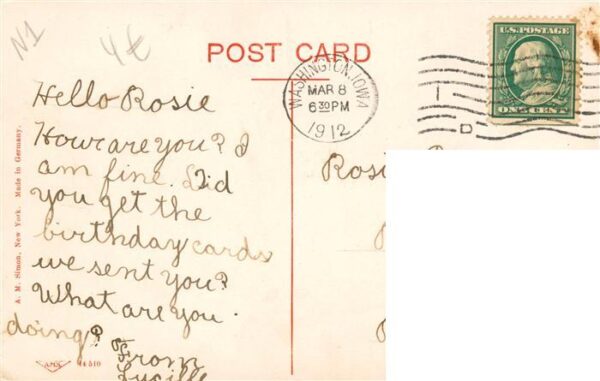 N1
4¢
POST CARD
U.S. POSTAGE
ONE CENT
WASHINGTON, IOWA
MAR 8
6 30 PM
1912
Hello Rosie
How are you? I
am fine. Did
you get the
birthday cards
we sent you?
What are you
doing?
From
Lucille
Rosi
A. M. Simon, New York. Made in Germany.
44510